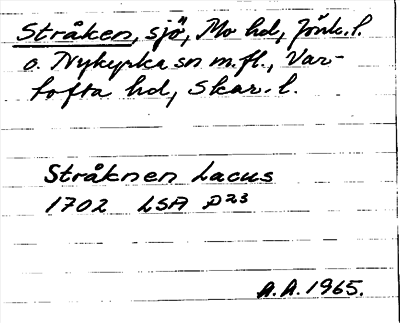 Stråken, sjö, Mo hd, Jönk. l.
o. Nykyrka sn m.fl., Var-
tofta hd, Skar. l.
Stråknen Lacus
1702 LSA D23
A.A. 1965.